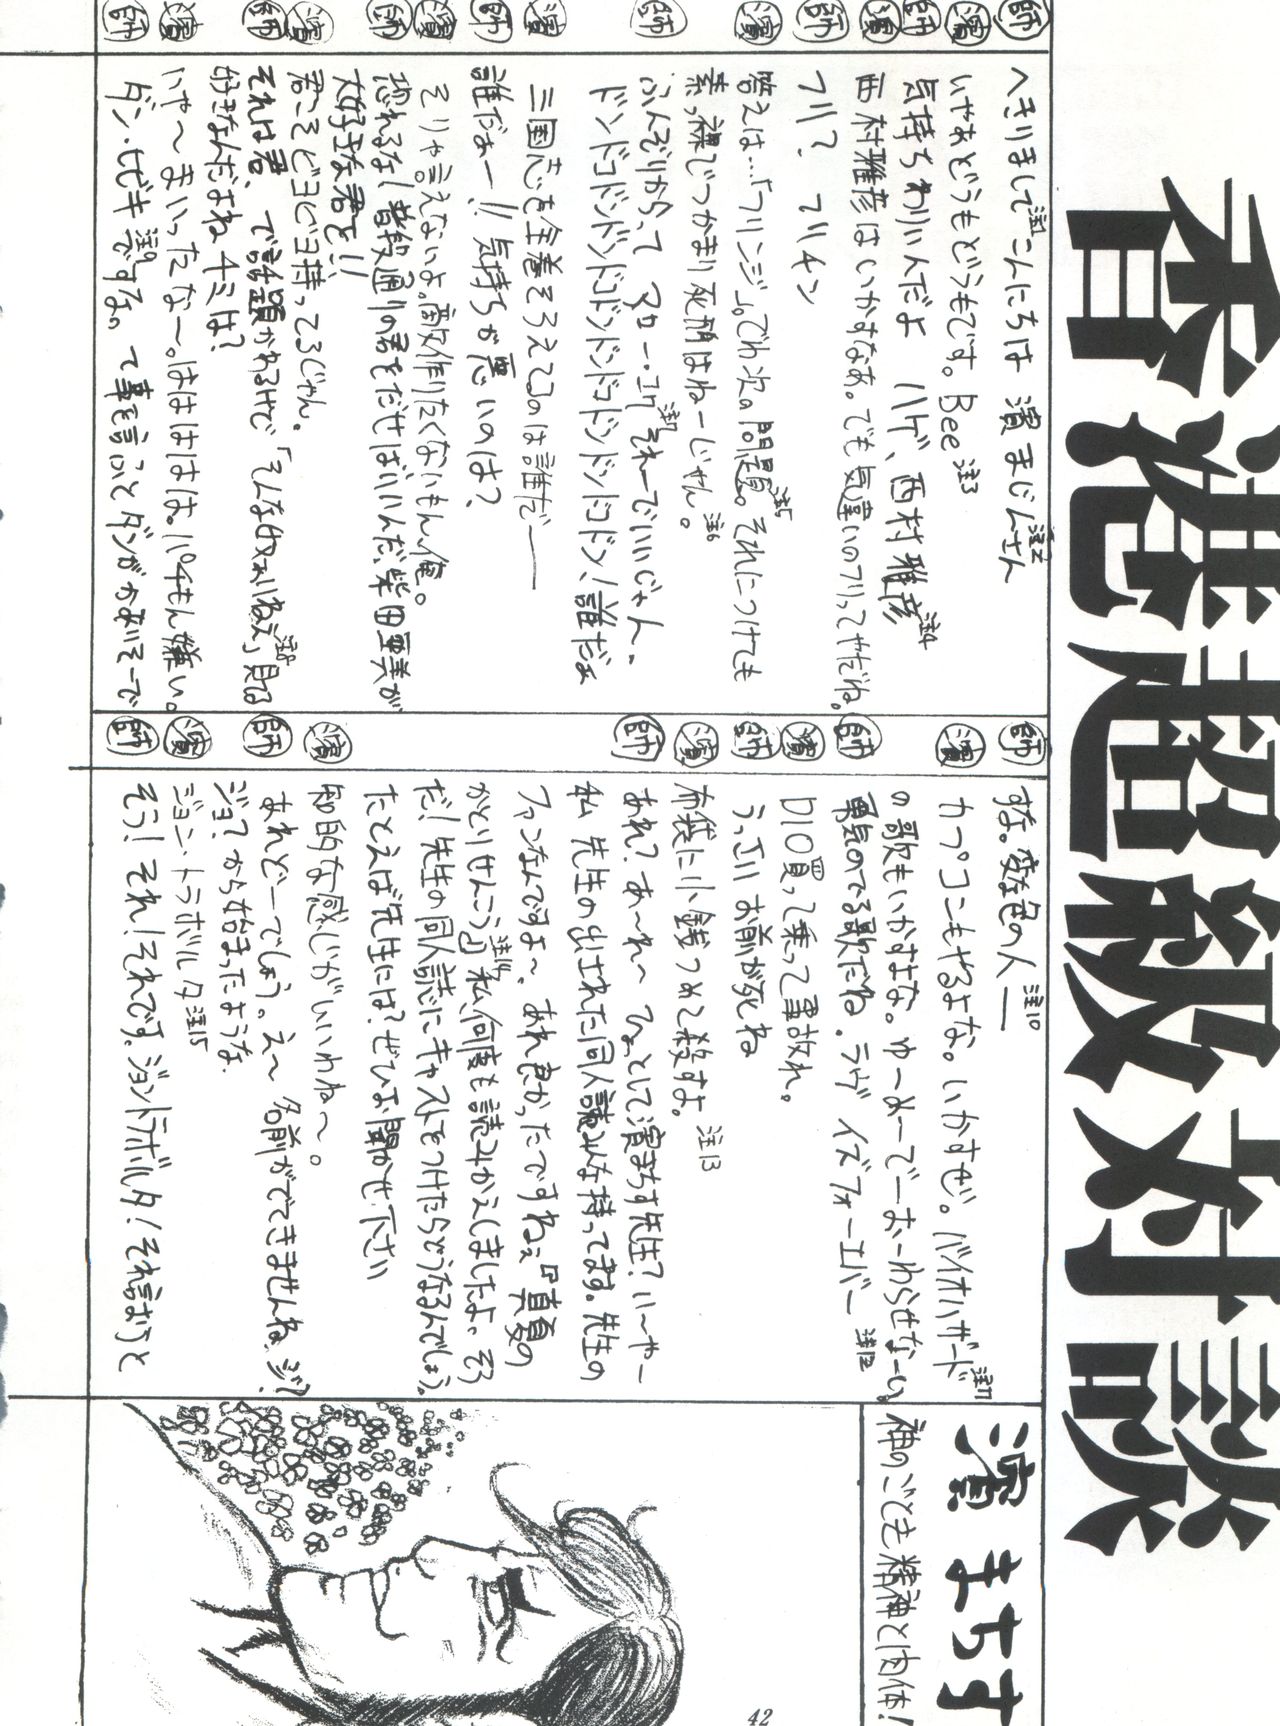 香港超級対談
師 へきりまして注1こんにちは 濱まじんさん注2
濱 いやあどうもどうもです。Bee注3
師 気持ちわりいんだよ ハゲ、西村雅彦注4
濱 西村雅彦はいかすなあ。でも気違いのフリってやだね。
師 フリ? フリチン
濱 答えは…「フリンジ」。でわ次の問題。注5それにつけても
素っ裸でつかまり死刑はねーじゃん。注6
師 ふんぞりからって 注7それーでいいじゃん・
ドンドコドンドンドコドンドンドコドンドンドコドン!誰だぁ
濱 三国志を全巻そろえてるのは誰だ――
師 誰だぁー!!気持ちが悪いのは?
濱 そりゃ言えないよ。敵作りたくないもん俺。
師 恐れるな!普段通りの君をだせばいいんだ、柴田亜美が
大好きな君を!!
濱 君こそビヨビヨ持ってるじゃん。
師 それは君、で話題かわるけど「そんな奴ァいねえ」注8見てる
好きなんだよね、チミは?
濱 いや〜まいったな〜。ははははは。パチもん嫌い。
師 ダン・ヒビキ注9ですな。て事を言うとダンがかわいそーで
師 すな。変な色の人―注10
濱 カプコンもやるよな。いかすぜ。バイオハザード注11
の歌もいかすよな。ゆーめーでーおーわらせなーい
師 勇気のでる歌だね。ラヴ イズフォーエバー注12
濱 DIO買って乗って事故れ。
師 うっさい お前が死ね
濱 布袋に小銭つめて殺すよ。注13
師 あれ?あ〜れ〜 ひょっとして濱まちす先生?い〜や〜
私 先生の出された同人誌みんな持ってます。先生の
ファンなんですよ〜、あれ良かったですねぇ『真夏の
かとりせんこう』注14私、何度も読みかえしましたよ。そう
だ!先生の同人誌にキャストをつけたらどうなるんでしょう。
たとえば先生には?ぜひお聞かせ下さい
濱 知的な感じがいいわね〜。
師 あれどーでしょう。え〜 名前がでてきませんね、ジ?
ジョ?から始まったような
濱 ジョン・トラボルタ注15
師 そう!それ!それです。ジョントラボルタ!それ言おうと
濱 まちす
神のごとき精神と肉体!
42